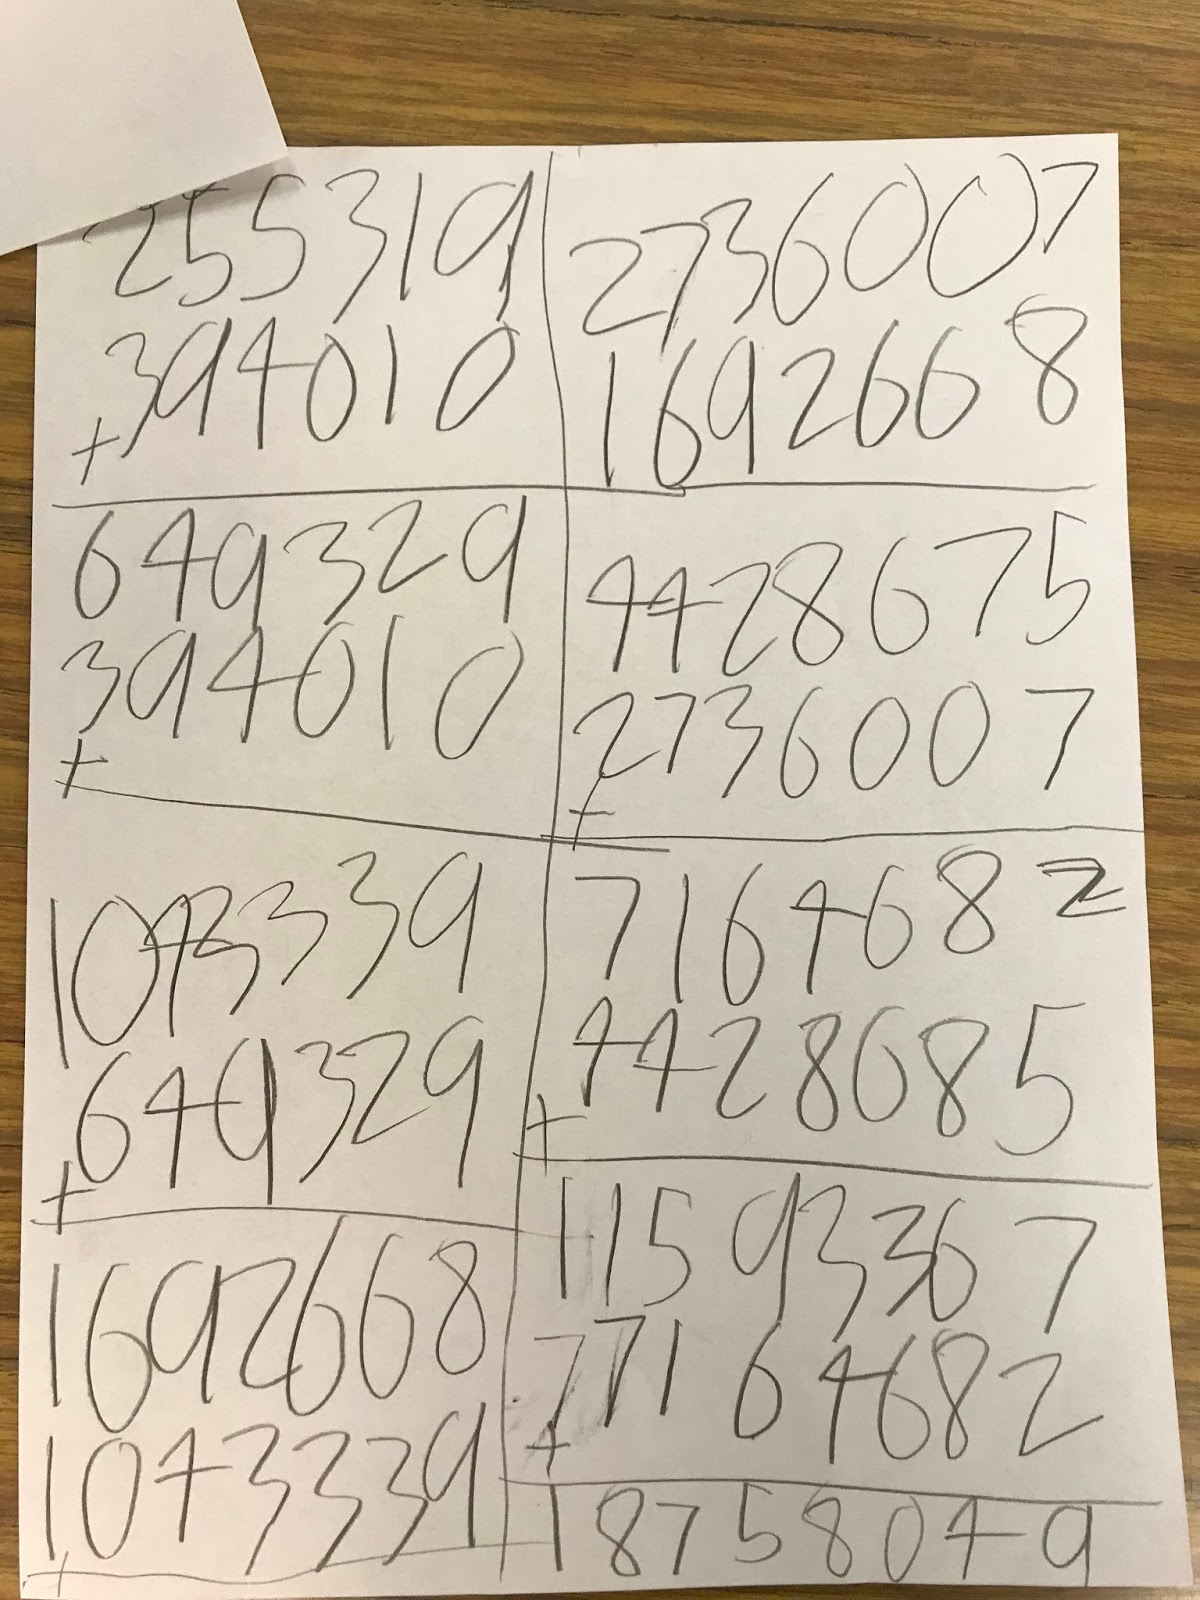 255319
+394010
649329
+394010
1043339
+649329
1692668
+1043339
2736007
1692668
4428675
+2736007
7164682
+4428685
11593367
+77164682
18758049